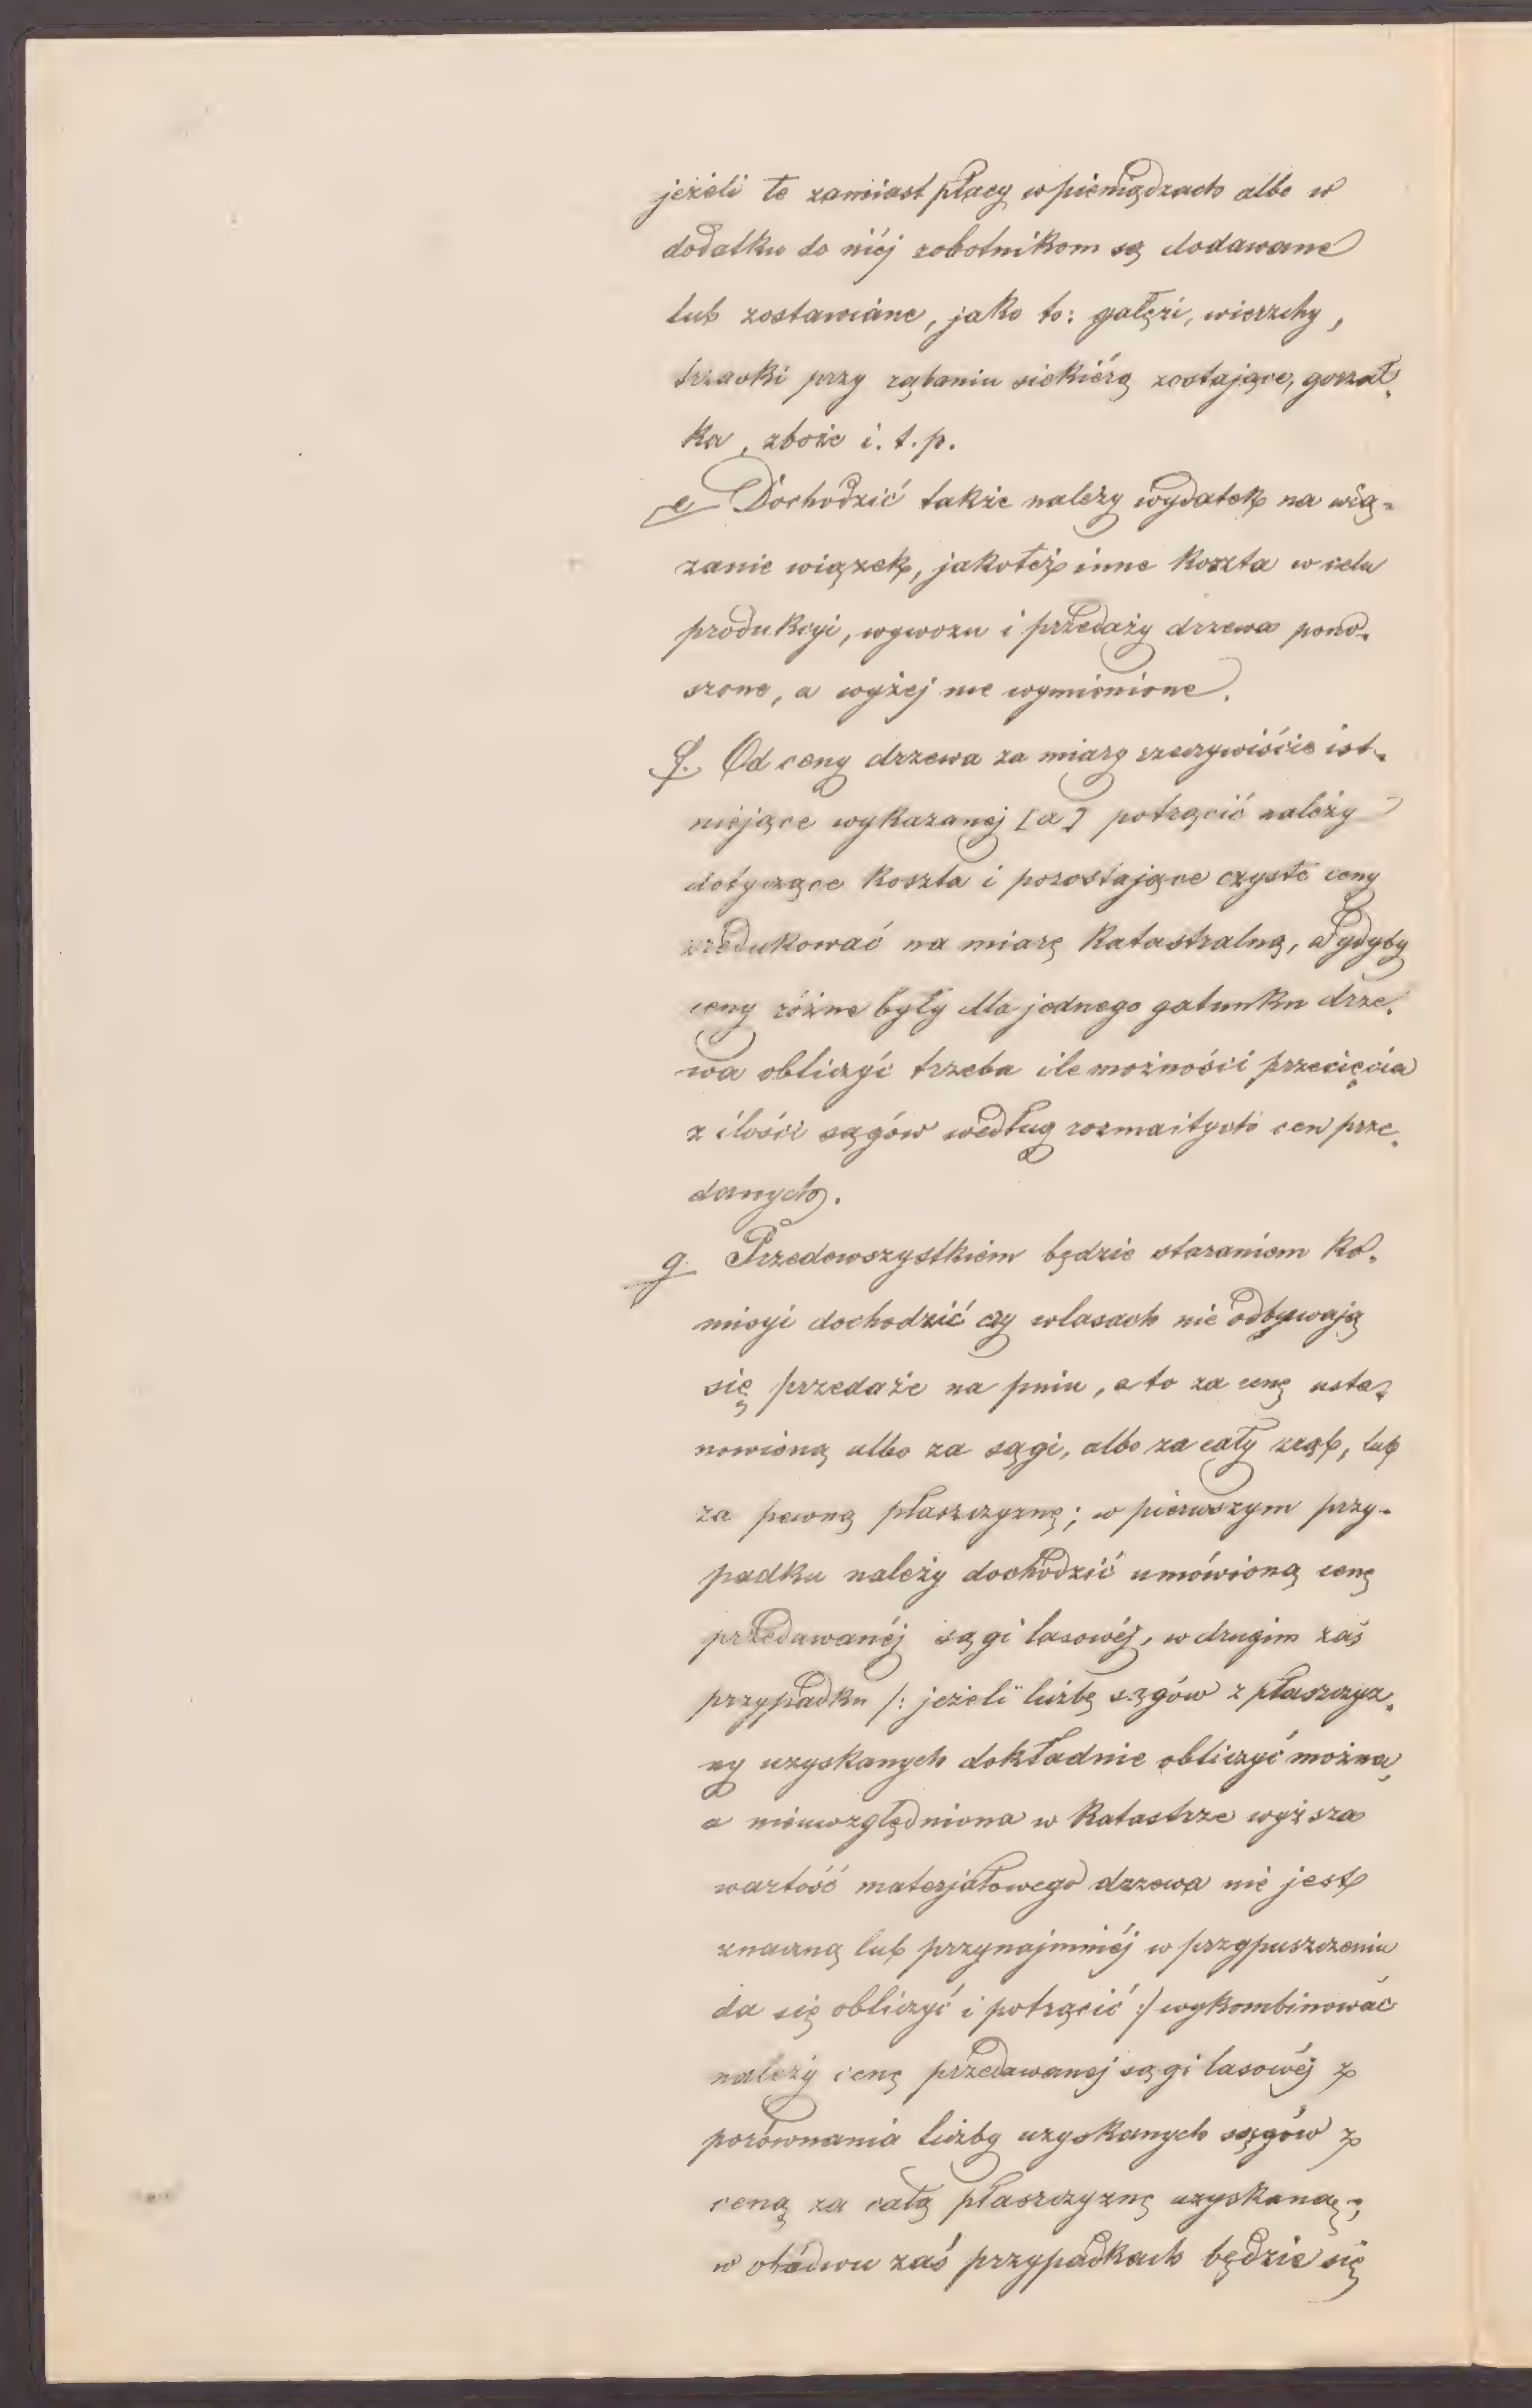 jeżeli te zamiast płacy w pieniądzach albo w
dodatku do niéj robotnikom są dodawane
lub zostawiane, jako to: gałęzi, wierzchy,
trzaski przy rąbaniu siekiérą zostające, gorzał-
ka, zboże i. t. p.
e Dochodzić także należy wydatek na wią-
zanie wiązek, jakoteż inne koszta w celu
produkcyi, wywozu i przedaży drzewa pono-
szone, a wyżej nie wymienione.
f. Od ceny drzewa za miarę rzeczywiście ist-
niejące wykazanej [a] potrącić należy
dotyczące koszta i pozostające czyste ceny
zredukować na miarę katastralną, a gdyby
ceny różne były dla jednego gatunku drze-
wa obliczyć trzeba ile możności przecięcia
z ilości sągów według rozmaitych cen prze-
danych.
g. Przedewszystkiém będzie staraniem Ko-
misyi dochodzić czy w lasach nie odbywają
się przedaże na pniu, a to za cenę usta-
nowioną albo za sągi, albo za cały zrąb, lub
za pewną płaszczyznę; w pierwszym przy-
padku należy dochodzić umówioną cenę
przedawanéj sągi lasowéj, w drugim zaś
przypadku /: jeżeli liczbę sągów z płaszczyz-
ny uzyskanych dokładnie obliczyć można,
a nieuwzględniona w katastrze wyższa
wartość materjałowego drzewa nie jest
znaczną lub przynajmniéj w przypuszczeniu
da się obliczyć i potrącić :/ wykombinować
należy cenę przedawanej sągi lasowéj z
porównania liczby uzyskanych sągów z
ceną za całą płaszczyznę uzyskaną;
w obadwu zaś przypadkach będzie się